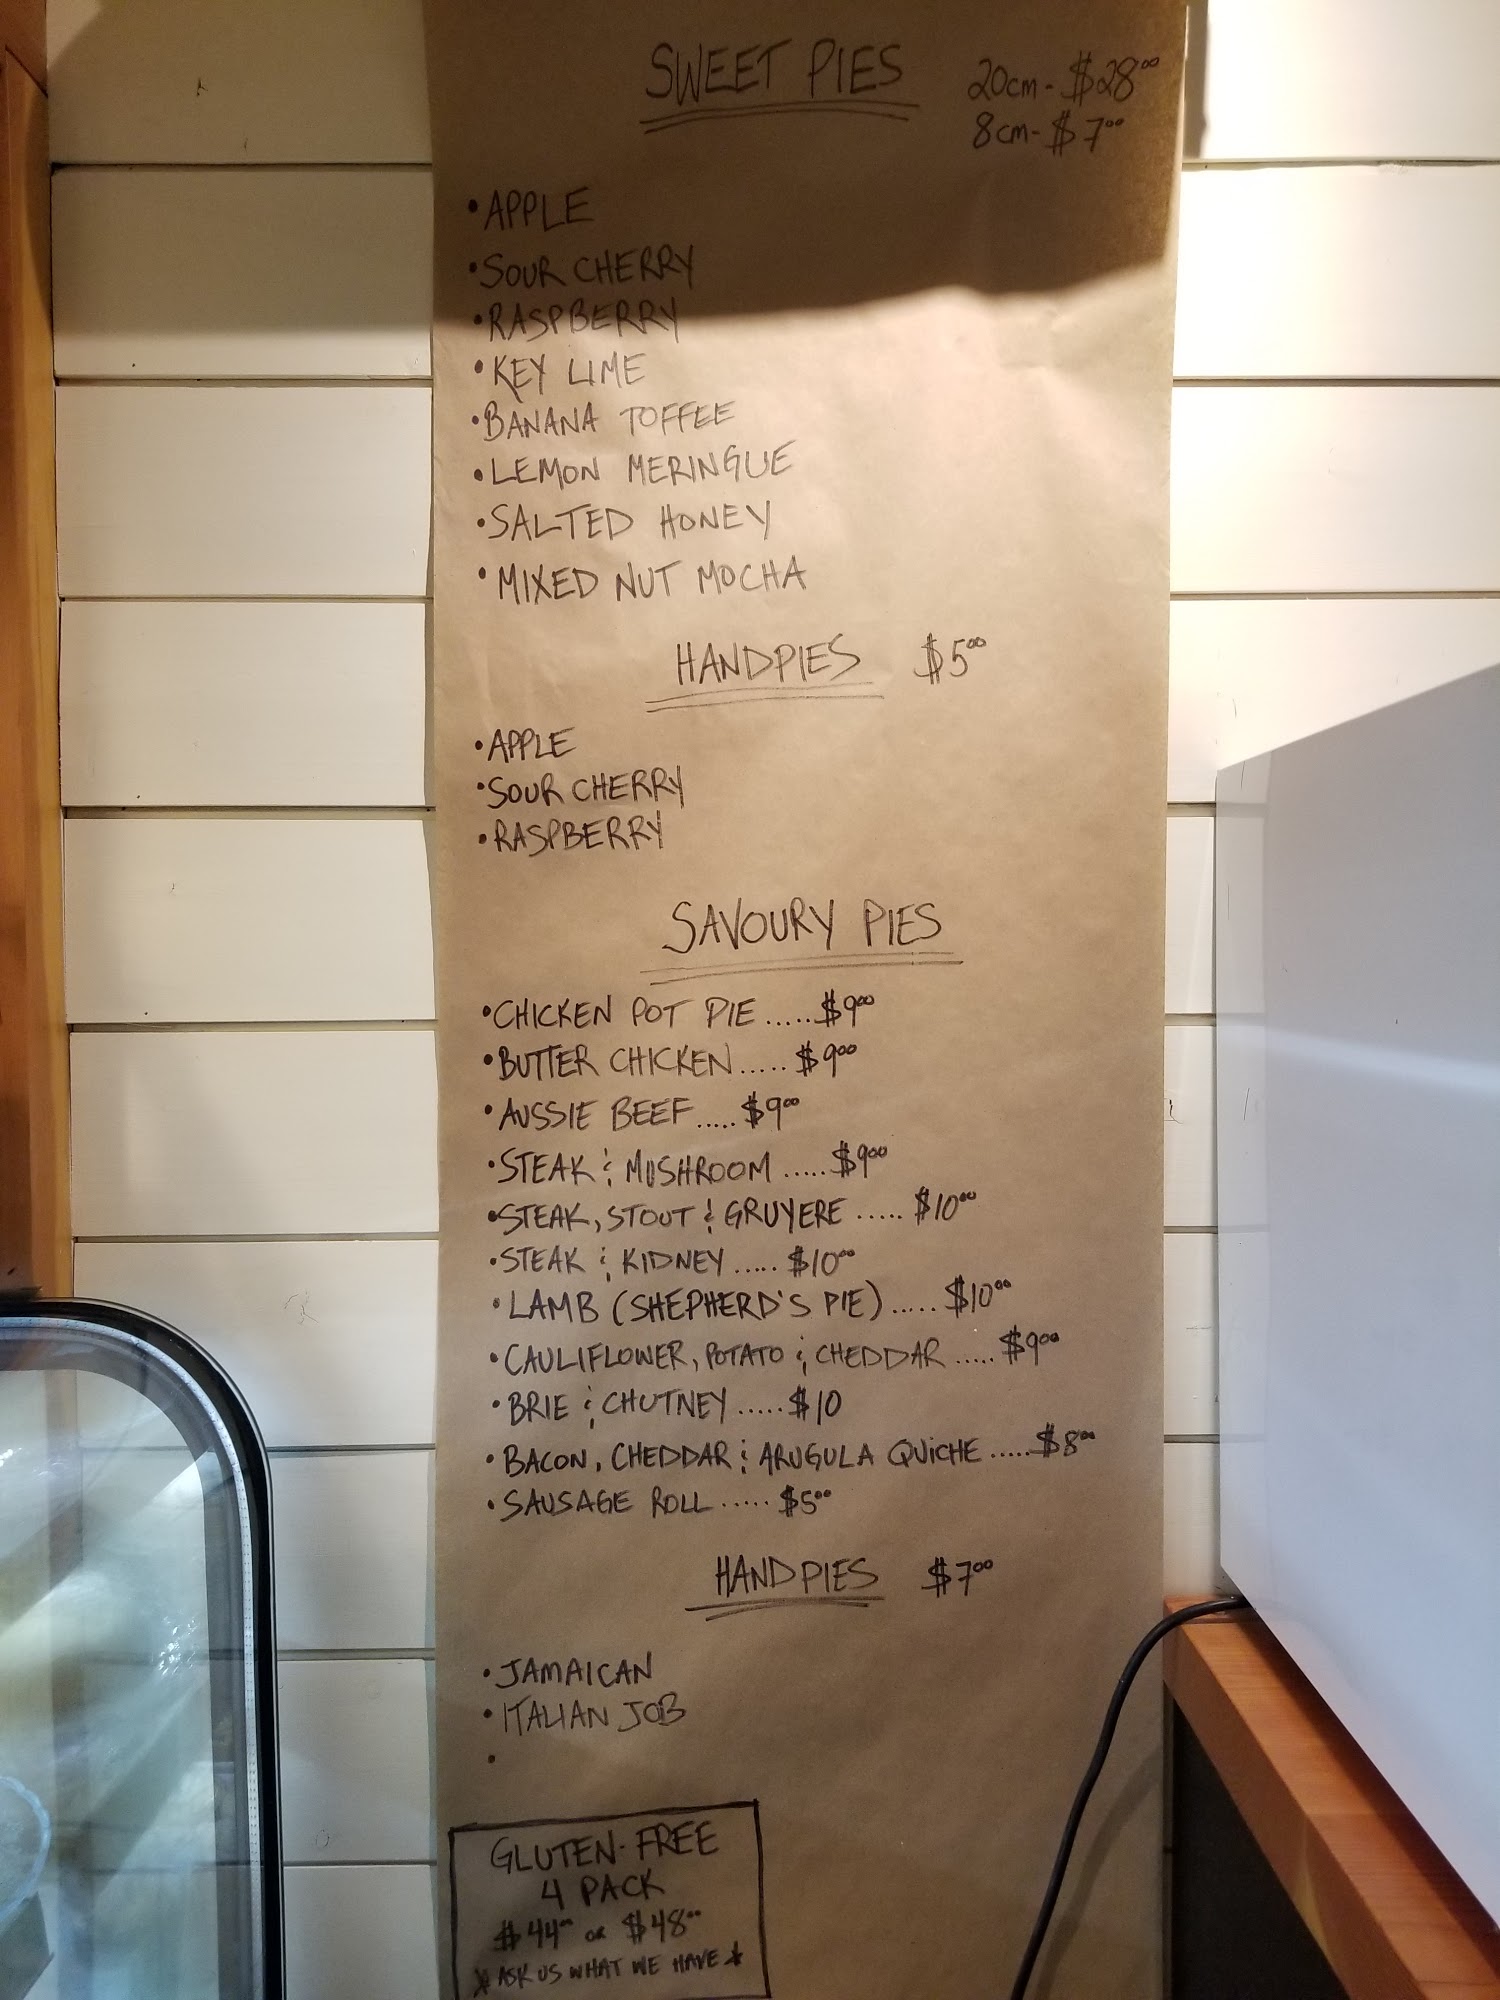 SWEET PIES
20cm - $28⁰⁰
8cm - $7⁰⁰
• APPLE
• SOUR CHERRY
• RASPBERRY
• KEY LIME
• BANANA TOFFEE
• LEMON MERINGUE
• SALTED HONEY
• MIXED NUT MOCHA
HANDPIES $5⁰⁰
• APPLE
• SOUR CHERRY
• RASPBERRY
SAVOURY PIES
• CHICKEN POT PIE ..... $9⁰⁰
• BUTTER CHICKEN ..... $9⁰⁰
• AUSSIE BEEF ..... $9⁰⁰
• STEAK & MUSHROOM ..... $9⁰⁰
• STEAK, STOUT & GRUYERE ..... $10⁰⁰
• STEAK & KIDNEY ..... $10⁰⁰
• LAMB (SHEPHERD'S PIE) ..... $10⁰⁰
• CAULIFLOWER, POTATO & CHEDDAR ..... $9⁰⁰
• BRIE & CHUTNEY ..... $10
• BACON, CHEDDAR & ARUGULA QUICHE ..... $8⁰⁰
• SAUSAGE ROLL ..... $5⁰⁰
HANDPIES $7⁰⁰
• JAMAICAN
• ITALIAN JOB
•
GLUTEN-FREE
4 PACK
$44⁰⁰ OR $48⁰⁰
* ASK US WHAT WE HAVE *